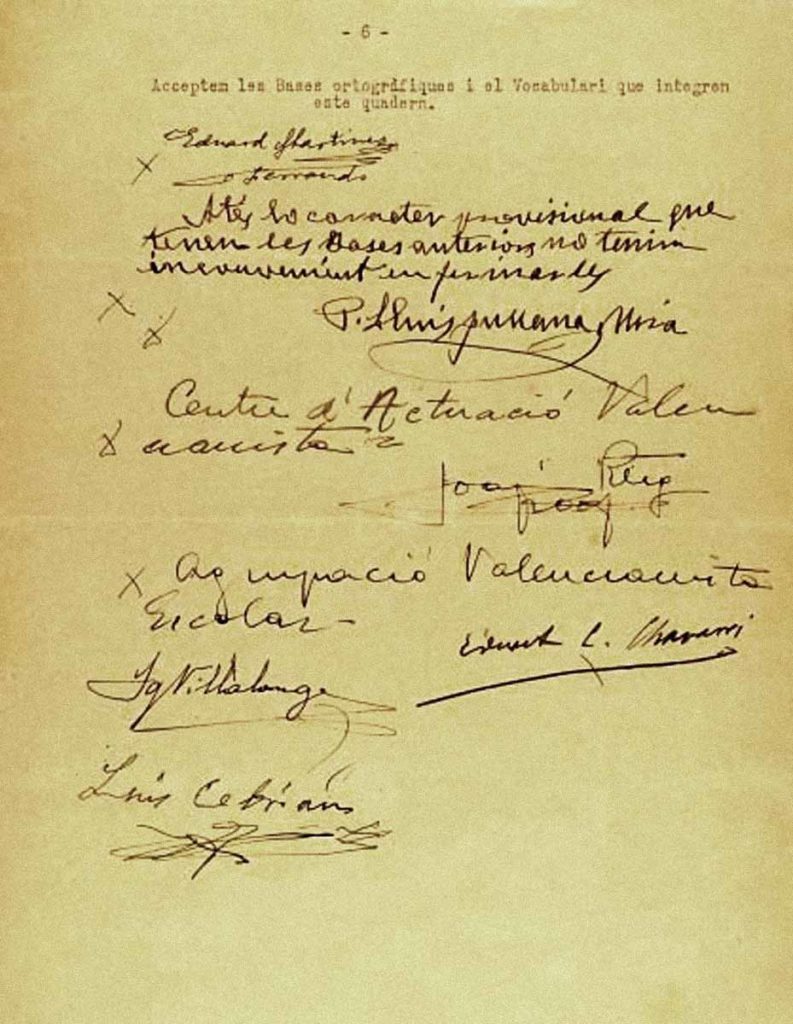 - 6 -
Acceptem les Bases ortográfiques i el Vocabulari que integren
este quadern.
Eduard Martinez
Ferrando
Atés lo caracter provisional que
tenen les Bases anteriors no tenim
inconvenient en firmarles
P. Lluis Fullana Mira
Centre d'Actuació Valen
cianista
Reig
Agrupació Valencianista
Escolar
Eduart L. Chavarri
Ig Villalonga
Luis Cebrián